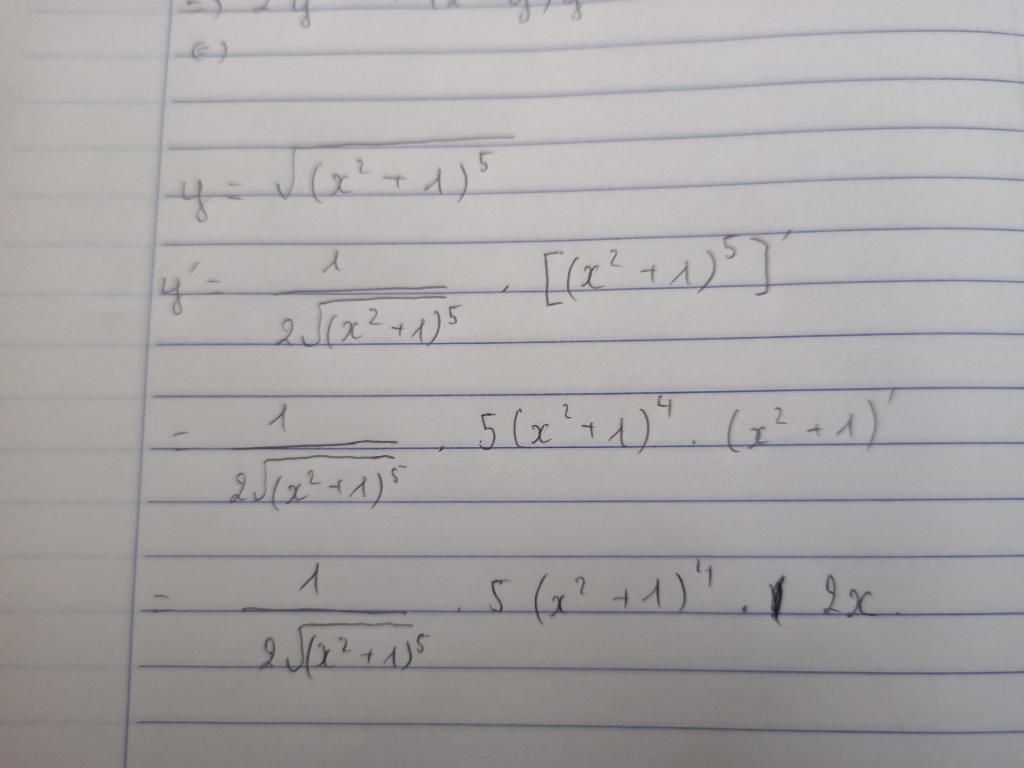 (=)
y = √(x² + 1)⁵
y' = 1 / 2√(x²+1)⁵ . [(x² + 1)⁵]'
= 1 / 2√(x²+1)⁵ . 5(x²+1)⁴ . (x² + 1)'
= 1 / 2√(x²+1)⁵ . 5(x² + 1)⁴ . 2x